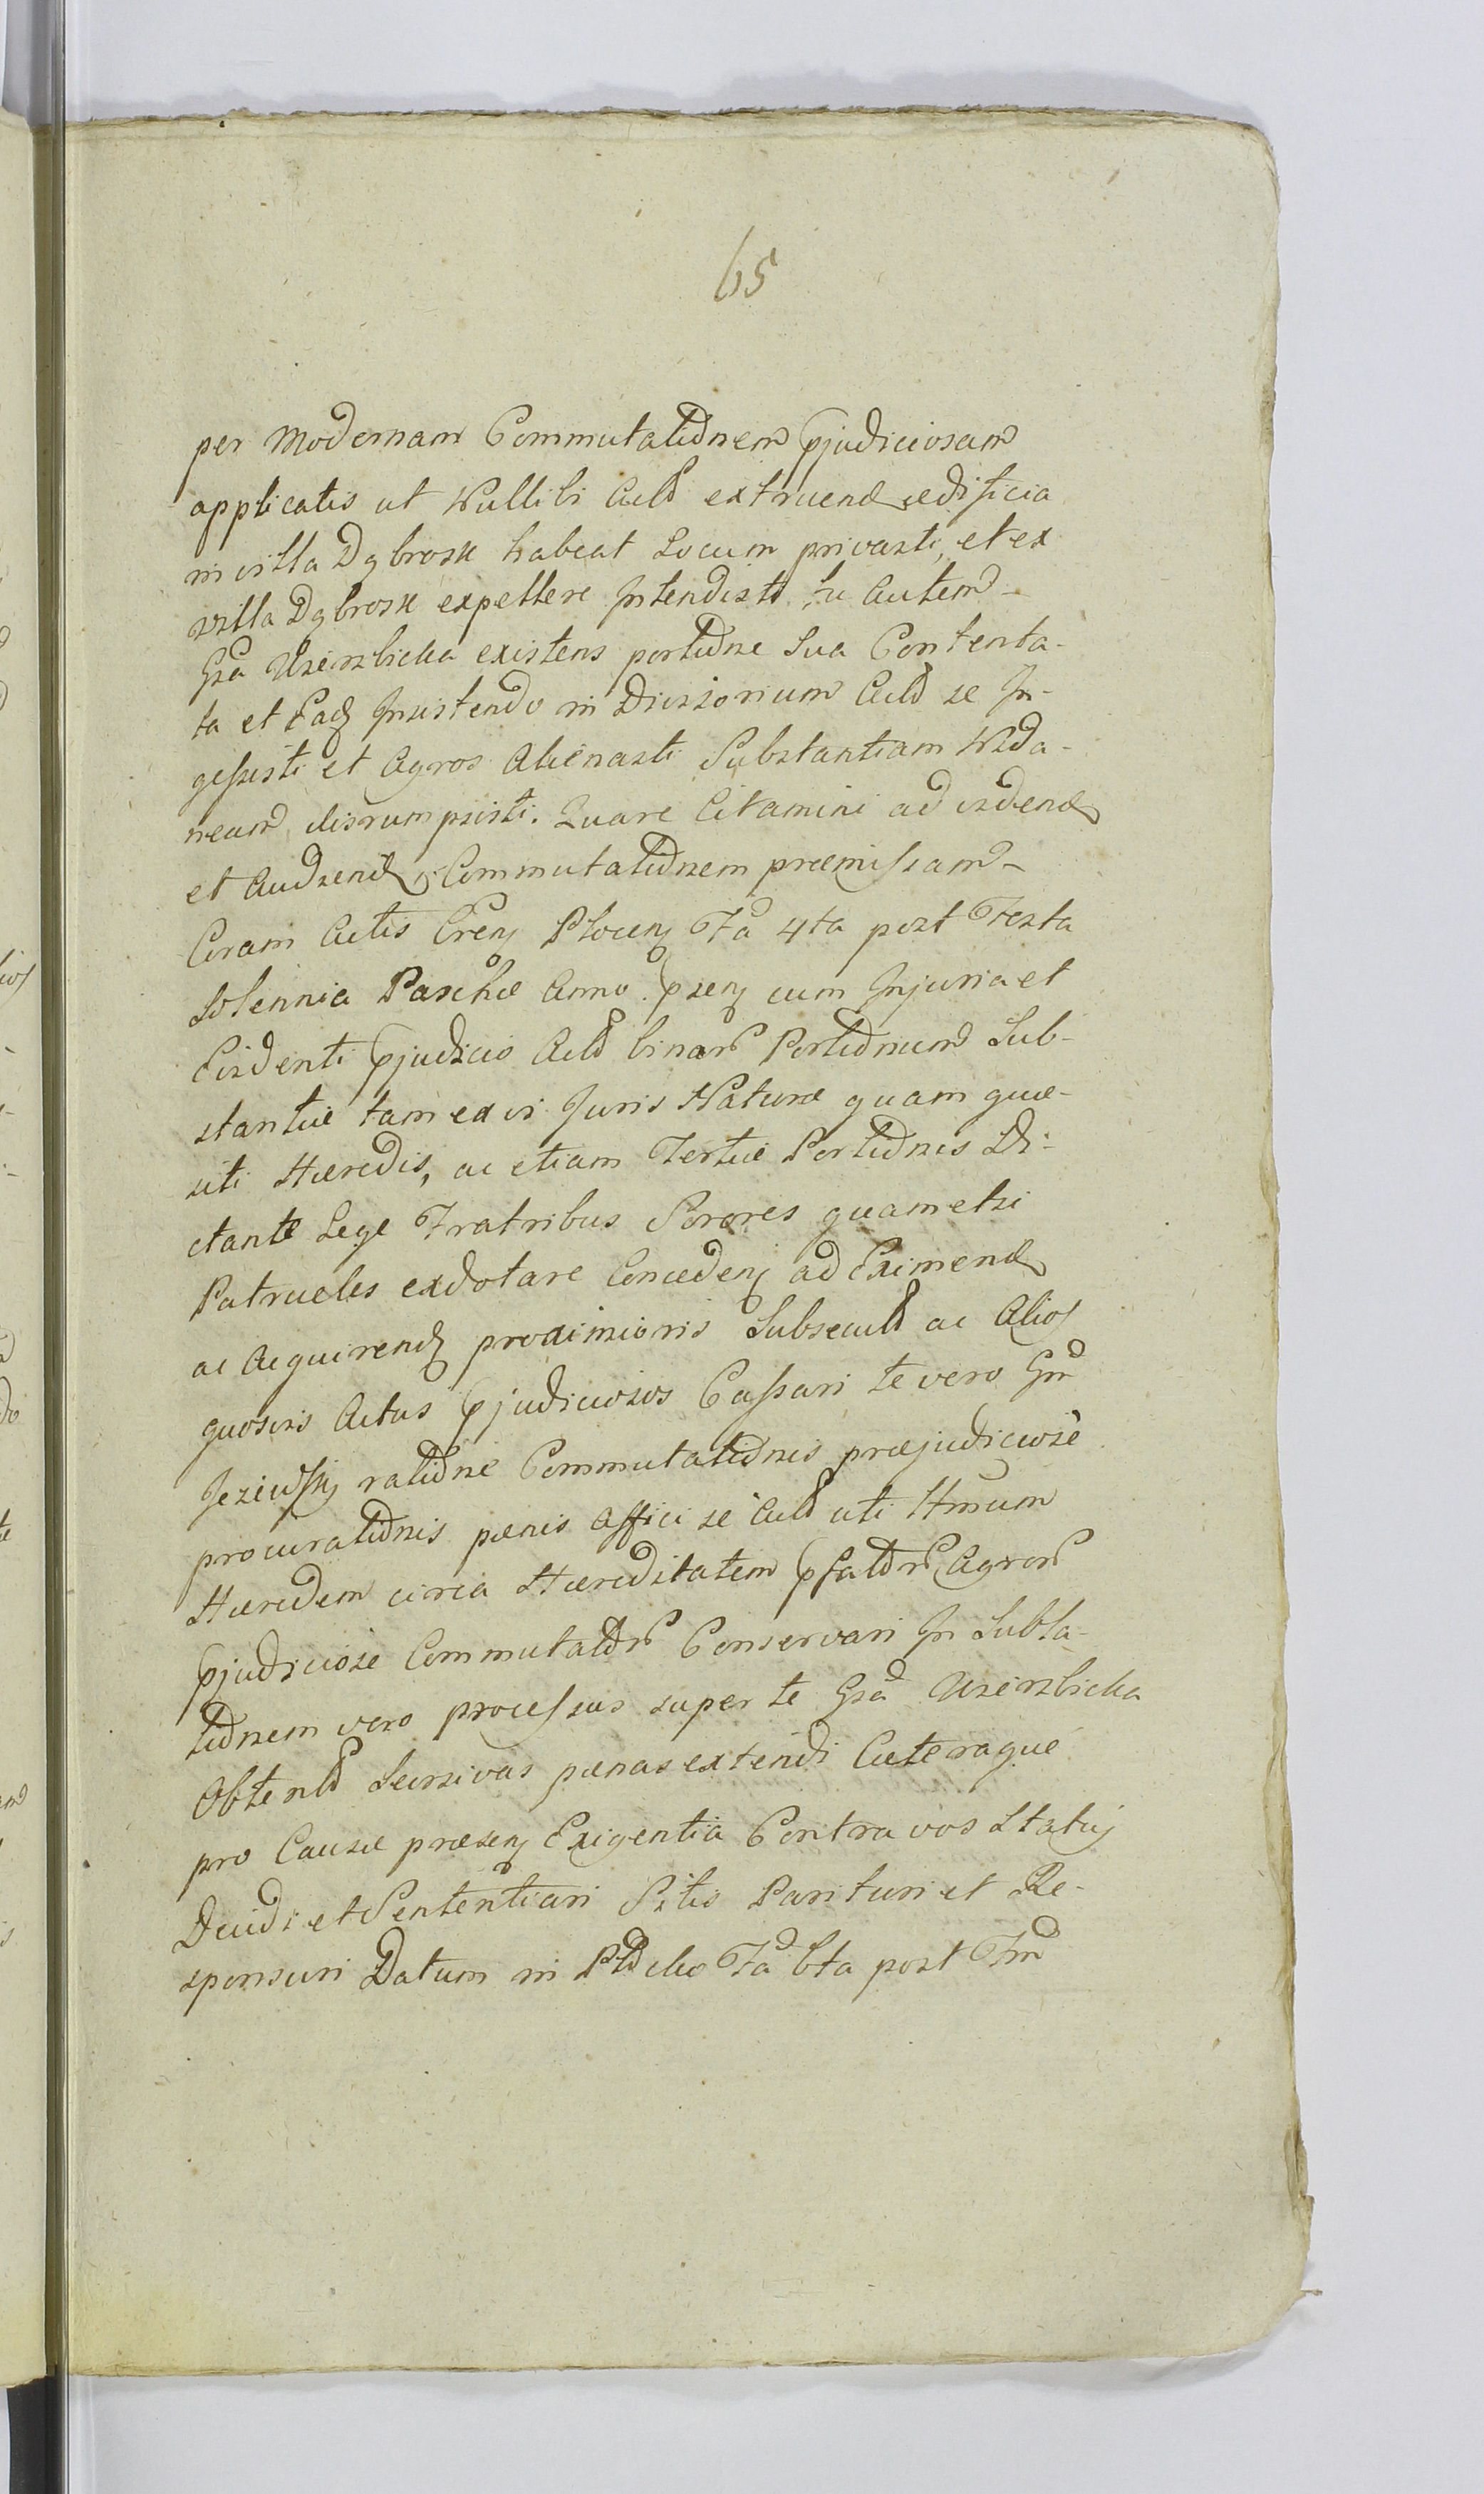 65
per modernam Commutatõnem pjudiciosam
applicatis ut Nullibi Actõ extruend ædificia
in villa Dąbrosk habeat Locum privasti, et ex
villa Dąbrosk expellere Intendisti, tu Autem
Gsa existens portõne Sua Contenta-
ta et Eaq Insistendo in Divisorium Actõ se In-
gessisti et Agros Alienasti Substantiam
disrumpsisti. Quare Citamini ad videnđ
et Audiend Commutatõnem præmissam
Coram Actis Cren Plocen Fã 4ta post Festa
Solennia Paschæ Anno psen cum Injuria et
Evidenti pjudicio Actõ binar Portõnum Sub-
stantiæ tam ex vi Juris Naturæ quam quæ-
siti Hæredis, ac etiam Tertiæ Portõnis Di-
ctante Lege Fratribus Sorores quametsi
Patrueles exdotare Conceden ad Eximend
ac Acquirend proximioris Subsecutõ ac Alios
quosvis Actus pjudiciosos Cassari te vero Gnr
ratõne Commutatõnis præjudiciosè
procuratõnis pœnis affici se Actõ uti
Hæredem circa Hæreditatem pfatõr Agror
pjudiciose Commutatõr Conservari In Subla-
tõnem vero processus super te Gsa
Obtentõ Lucrsivas pœnas extendi Cæteraque
pro Causæ præsen Exigentia Contra vos Statui
Decidi et Sententiari Sitis Parituri et Re-
sponsuri Datum in Fã 6ta post Fm